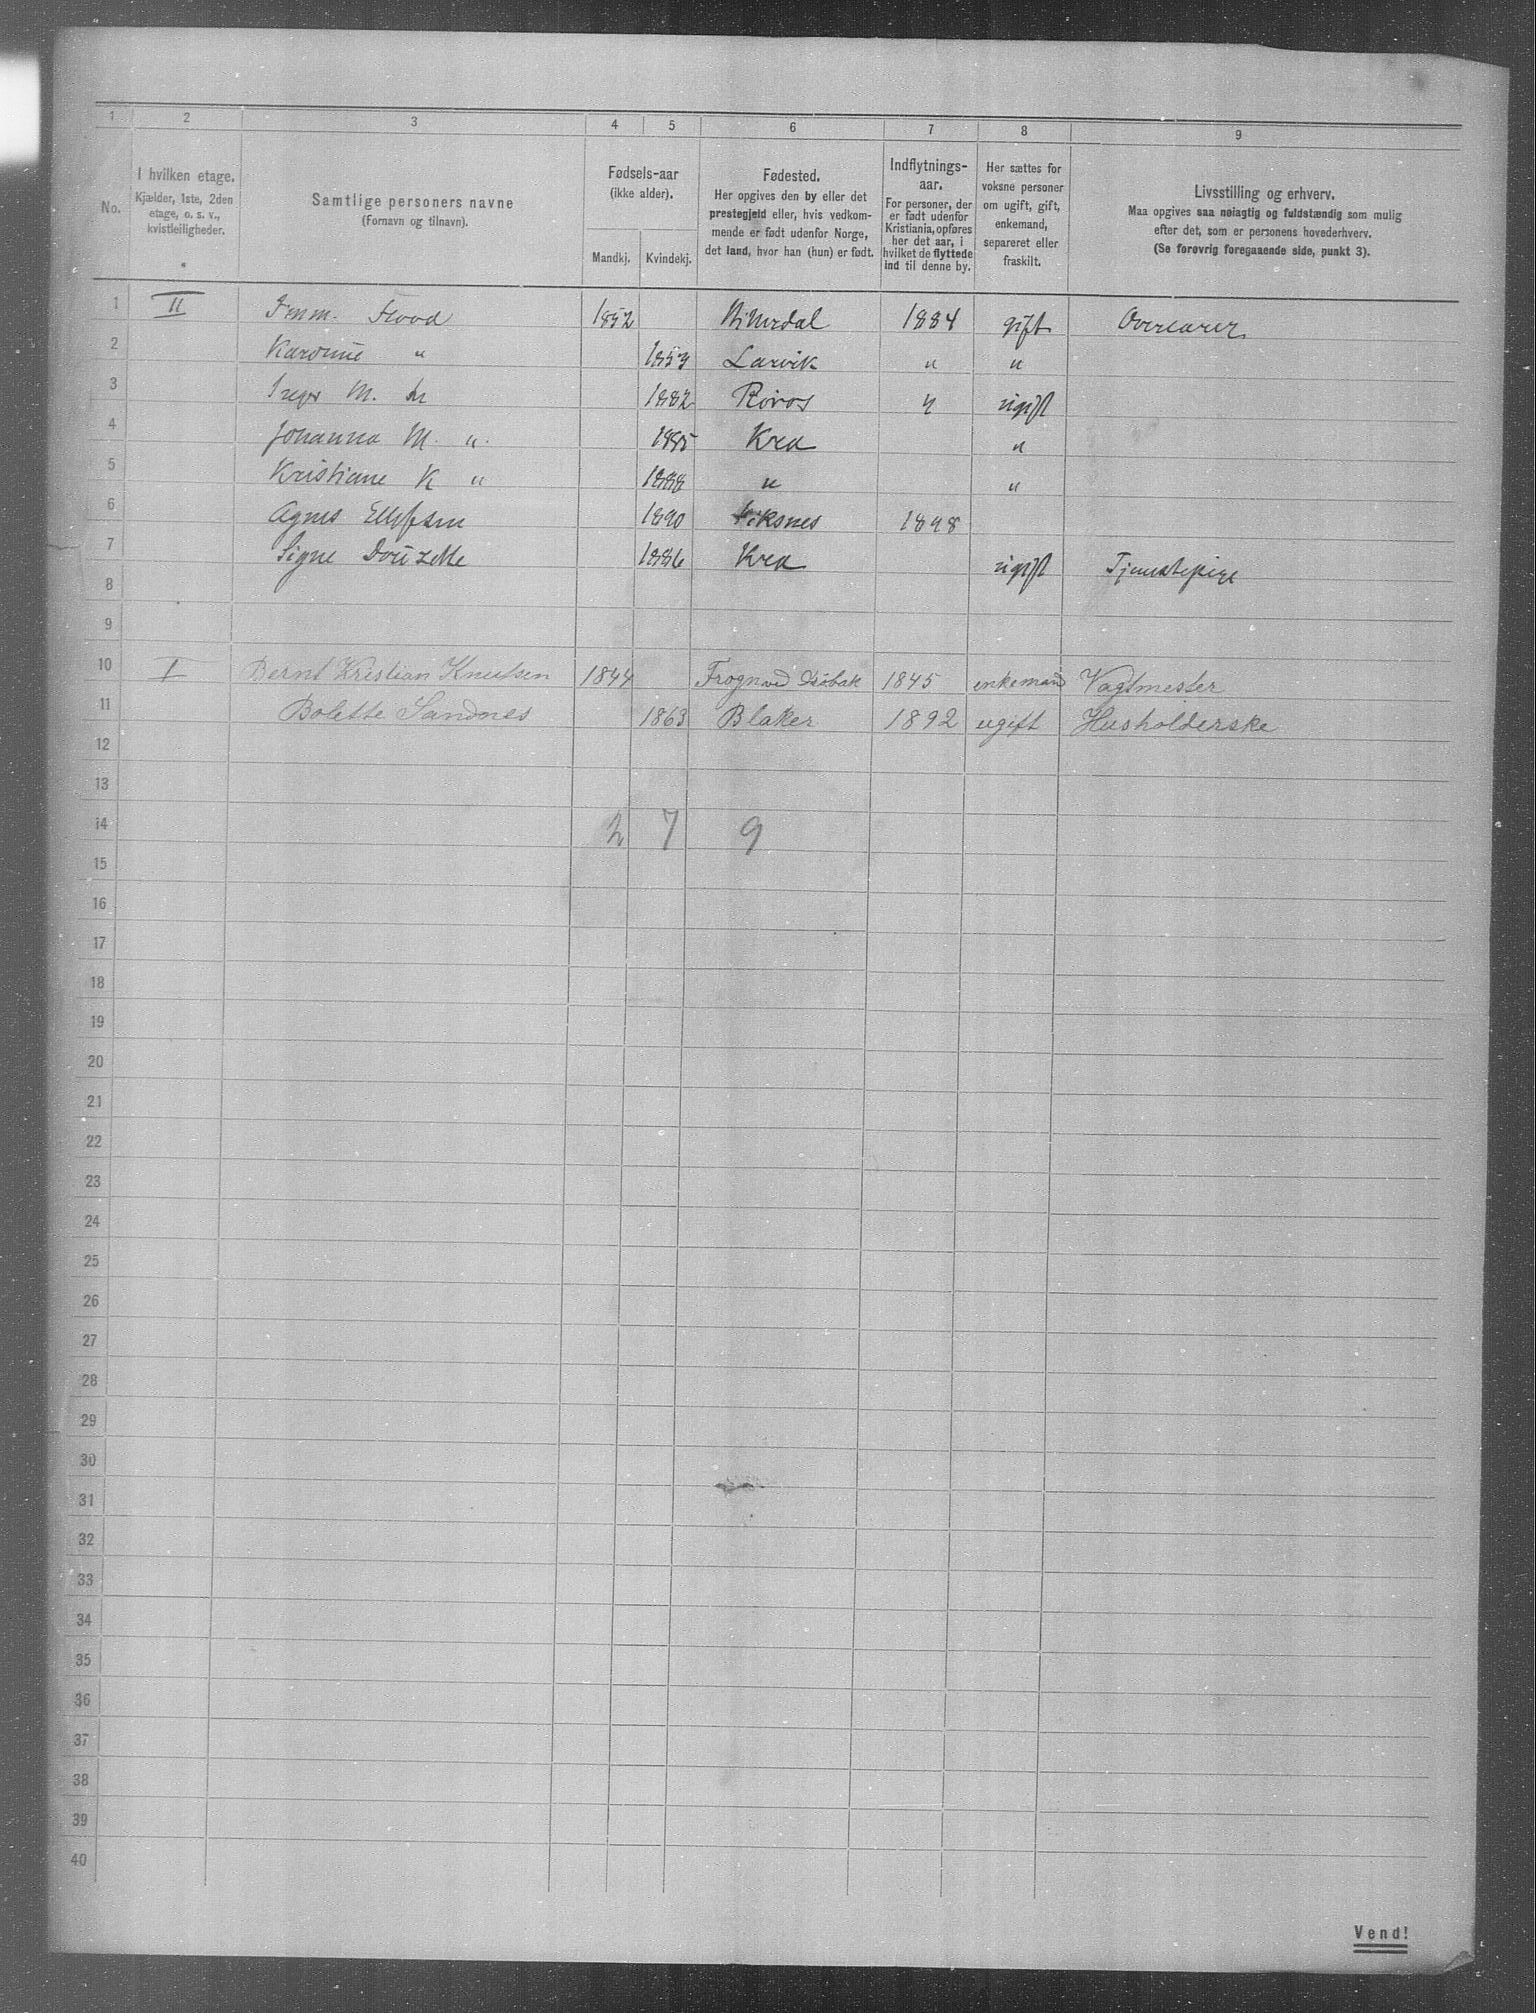 1 2 3 4 5 6 7 8 9
No. | I hvilken etage. Kjælder, 1ste, 2den etage, o. s. v., kvistleiligheder. | Samtlige personers navne (Fornavn og tilnavn). | Fødsels-aar (ikke alder). Mandkj. Kvindekj. | Fødested. Her opgives den by eller det prestegjeld eller, hvis vedkommende er født udenfor Norge, det land, hvor han (hun) er født. | Indflytnings-aar. For personer, der er født udenfor Kristiania, opføres her det aar, i hvilket de flyttede ind til denne by. | Her sættes for voksne personer om ugift, gift, enkemand, separeret eller fraskilt. | Livsstilling og erhverv. Maa opgives saa nøiagtig og fuldstændig som mulig efter det, som er personens hovederhverv. (Se forøvrig foregaaende side, punkt 3).
1 II Imm. Flood 1852 1884 gift Overlærer
2 Karoline " 1853 Larvik " "
3 Inger M. " 1882 Røros " ugift
4 Johanna M. " 1885 Kra "
5 Kristiane K " 1888 " "
6 Agnes Ellefsen 1890 1898
7 Signe 1886 Kra ugift Tjenestepige
8
9
10 I Bernt Kristian Knutsen 1844 Frogn ved Drøbak 1845 enkemand Vagtmester
11 Bolette Sandnes 1863 Blaker 1892 ugift Husholderske
12
13
14 2 7 9
15
16
17
18
19
20
21
22
23
24
25
26
27
28
29
30
31
32
33
34
35
36
37
38
39
40
Vend!